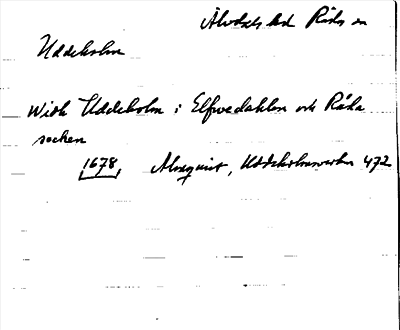 Älvdals hd Råda sn
Uddeholm
with Uddeholm i Elfwedahlen och Råda
sochen
1678, Almquist, Uddeholmsverken 472